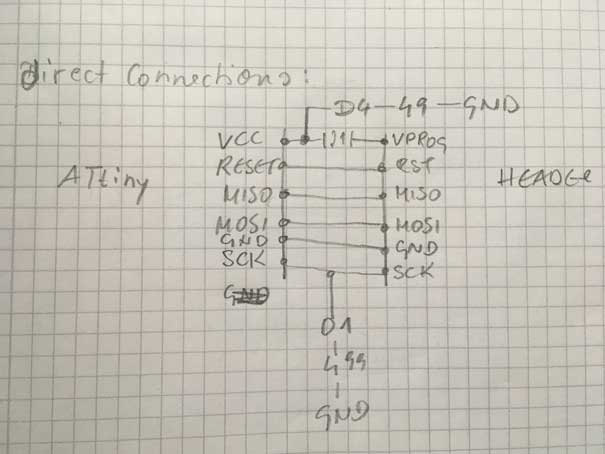 Direct Connections:
D4 - 49 - GND
VCC J1 VPROG
RESET RST
ATtiny HEADER
MISO MISO
MOSI MOSI
GND GND
SCK SCK
GND
D1
499
GND